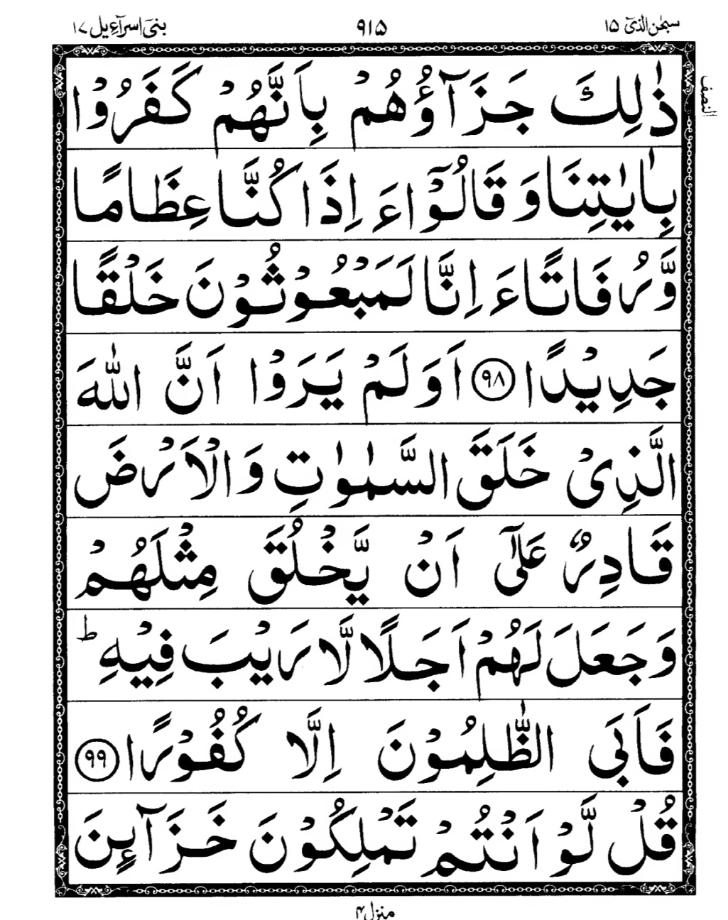 سبحٰن الذیۤ ۱۵
۹۱۵
بنیۤ اسرآءیل ۱۷
النصف
ذٰلِكَ جَزَآؤُهُمْ بِاَنَّهُمْ كَفَرُوْا
بِاٰيٰتِنَا وَ قَالُوْۤا ءَ اِذَا كُنَّا عِظَامًا
وَّ رُفَاتًا ءَ اِنَّا لَمَبْعُوْثُوْنَ خَلْقًا
جَدِيْدًا ۹۸ اَوَ لَمْ يَرَوْا اَنَّ اللّٰهَ
الَّذِىْ خَلَقَ السَّمٰوٰتِ وَ الْاَرْضَ
قَادِرٌ عَلٰٓى اَنْ يَّخْلُقَ مِثْلَهُمْ
وَ جَعَلَ لَهُمْ اَجَلًا لَّا رَيْبَ فِيْهِ ؕ
فَاَبَى الظّٰلِمُوْنَ اِلَّا كُفُوْرًا ۹۹
قُلْ لَّوْ اَنْتُمْ تَمْلِكُوْنَ خَزَآىِٕنَ
منزل ۴